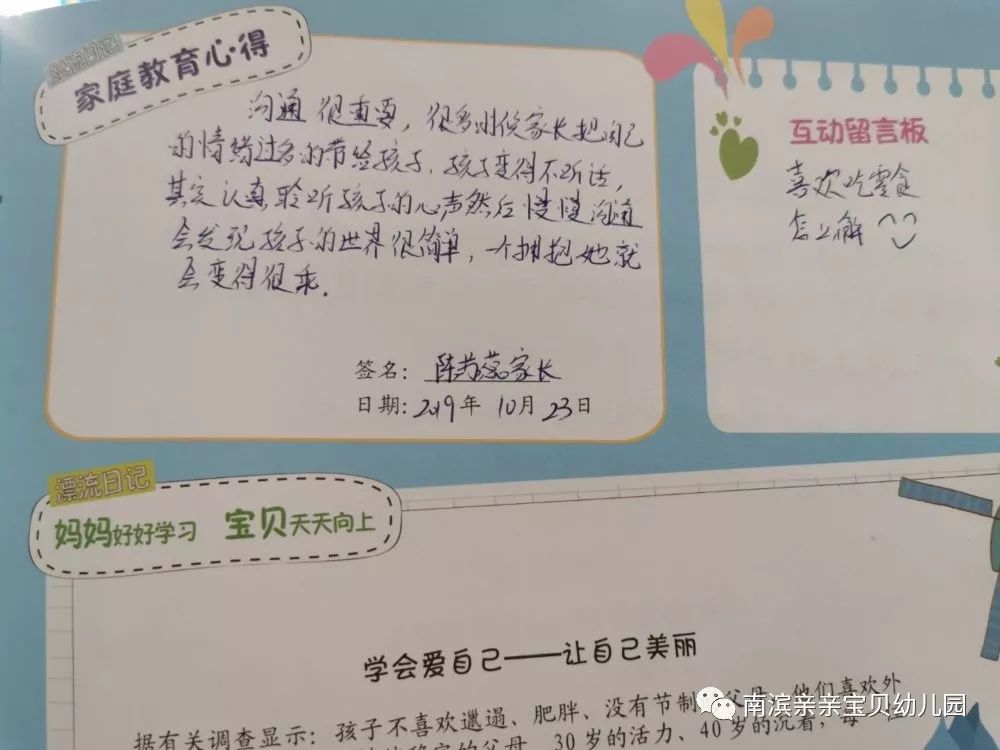 漂流日记
家庭教育心得
沟通很重要，很多时候家长把自己
的情绪过多的带给孩子，孩子变得不听话，
其实认真聆听孩子的心声然后慢慢沟通
会发现孩子的世界很简单，一个拥抱她就
会变得很乖．
签名：陈苏蕊家长
日期：2019年 10月 23日
互动留言板
喜欢吃零食
怎么解
漂流日记
妈妈好好学习 宝贝天天向上
学会爱自己——让自己美丽
据有关调查显示：孩子不喜欢邋遢、肥胖、没有节制 父母，他们喜欢外
父母、30岁的活力、40岁的沉着，每一位
南滨亲亲宝贝幼儿园